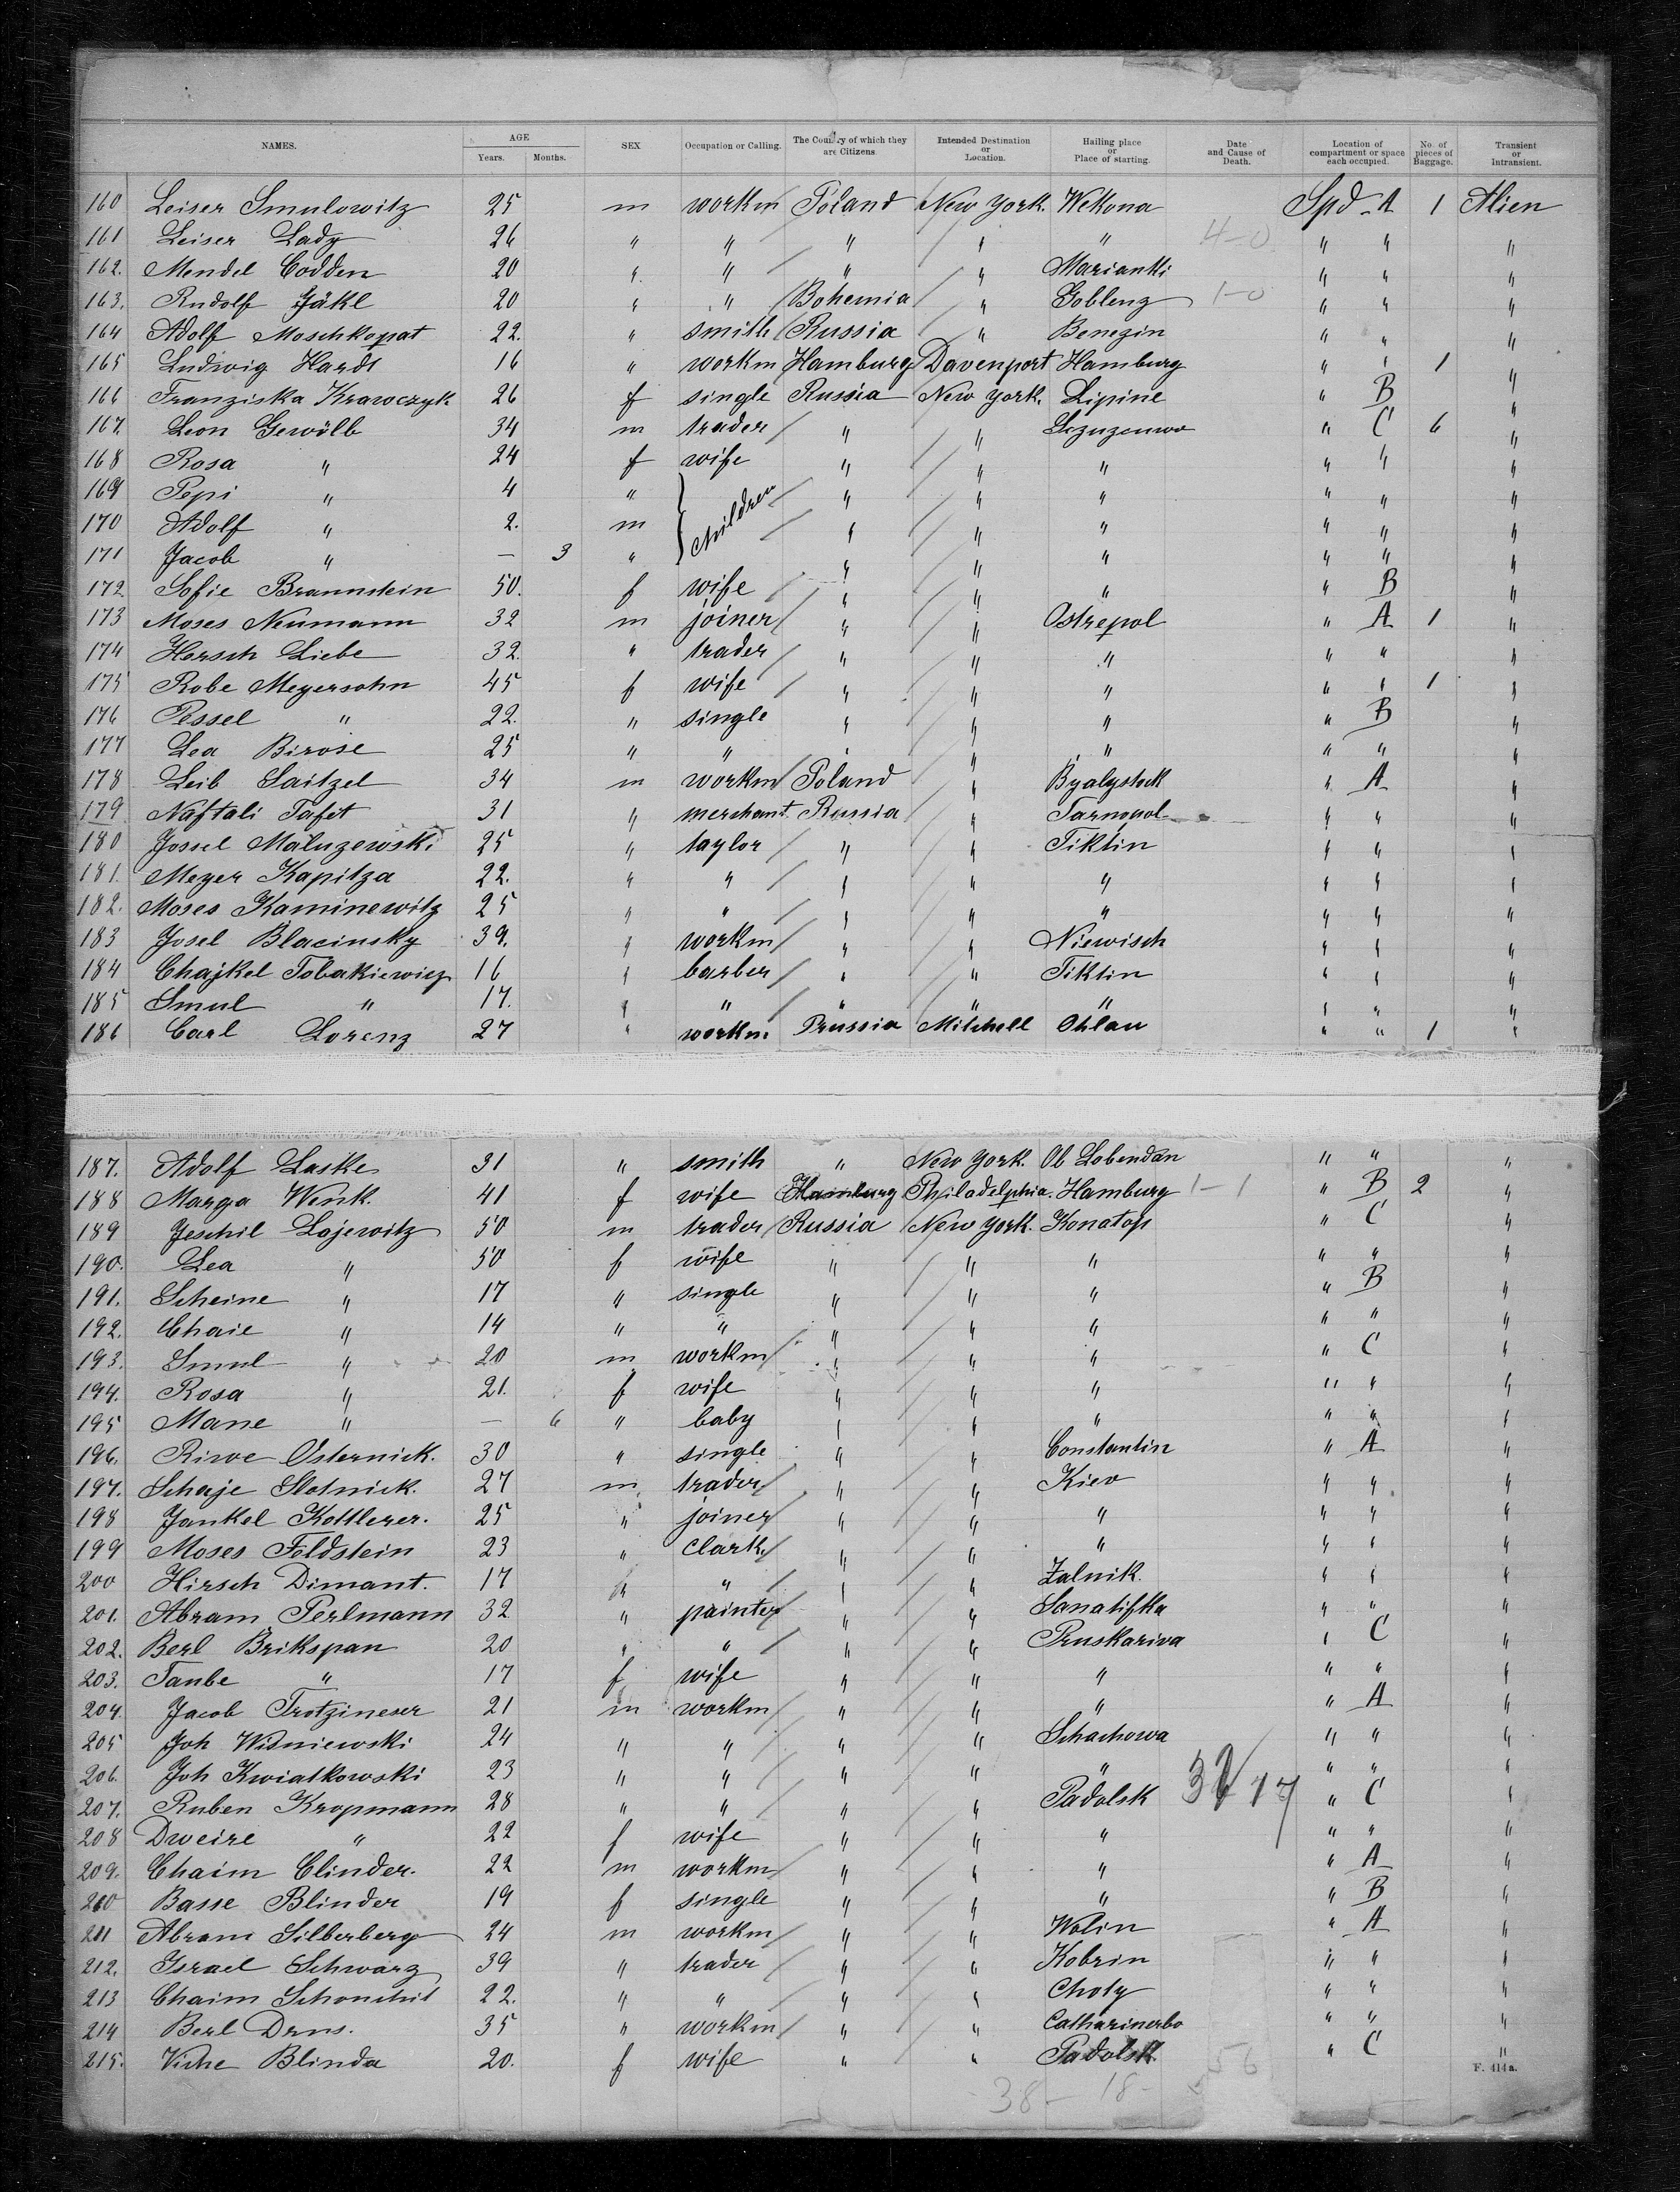 NAMES. AGE Years. Months. SEX Occupation or Calling. The Country of which they are Citizens. Intended Destination or Location. Hailing place or Place of starting. Date and Cause of Death. Location of compartment or space each occupied. No. of pieces of Baggage. Transient or Intransient.
160 Leiser Smulowitz 25 m workm Poland New York. Wekona Spd A 1 Alien
161 Leiser Lady 26 " " " " " 4-0 " " "
162. Mendel Codden 20 " " " " Marianki " " "
163. Rudolf Jäkl 20 " " Bohemia " Goblenz 1-0 " " "
164 Adolf Moschkopat 22. " smith Russia " Benezin " " "
165 Ludwig Hardt 16 " workm Hamburg Davenport Hamburg " " 1 "
166 Franziska Krawczyk 26 f single Russia New York. Lipine " B "
167. Leon Gewölb 34 m trader " " " C 6 "
168 Rosa " 24 f wife " " " " " "
169 Pepi " 4 " children " " " " " "
170 Adolf " 2. m " " " " " "
171 Jacob " — 3 " " " " " " "
172 Sofie Braunstein 50. f wife " " " " B "
173 Moses Neumann 32 m joiner " " Ostrepol " A 1 "
174 Hersch Liebe 32. " trader " " " " " "
175 Robe Meyersohn 45 f wife " " " " " 1 "
176 Pessel " 22. " single " " " " B "
177 Lea Birose 25 " " " " " " " "
178 Leib Saitzel 34 m workm Poland " Byalystock " A "
179 Naftali Tafet 31 " merchant Russia " Tarnopol " " "
180 Jossel Maluzewski 25 " taylor " " Tiktin " " "
181. Meyer Kapitza 22. " " " " " " " "
182. Moses Kaminewitz 25 " " " " " " " "
183 Josel Blacinsky 39. " workm " " Niewisch " " "
184 Chajkel Tobakiewicz 16 " barber " " Tiktin " " "
185 Smul " 17. " " " " " " " "
186 Carl Lorenz 27 " workm. Prussia Mitchell Ohlau " " 1 "
187. Adolf Laske 31 " smith " New York. Ob Lobendan " " "
188 Marga Wenk. 41 f wife Hamburg Philadelphia. Hamburg 1-1 " B 2 "
189 Jeschil Lojewitz 50 m trader Russia New York. Konatop " C "
190. Lea " 50 f wife " " " " " "
191. Scheine " 17 " single " " " " B "
192. Chaie " 14 " " " " " " " "
193. Smul " 20 m workm " " " " C "
194. Rosa " 21. f wife " " " " " "
195 Mane " — 6 " baby " " " " " "
196. Riwe Osternick. 30 " single " " Constantin " A "
197. Schaje Slotnick. 27 m trader " " Kiev " " "
198 Jankel Kottlerer. 25 " joiner " " " " " "
199 Moses Feldstein 23 " clark " " " " " "
200 Hirsch Dimant. 17 " " " " Zalnik. " " "
201. Abram Perlmann 32 " painter " " Sanatifka " " "
202. Berl Brikspan 20 " " " " Pruskariva " C "
203. Taube " 17 f wife " " " " " "
204. Jacob Trotzineser 21 m workm " " " " A "
205 Joh Wisniewski 24 " " " " Schachowa " " "
206. Joh Kwiatkowski 23 " " " " " " " "
207. Ruben Kropmann 28 " " " " Padolsk 17 " C "
208 Dweire " 22 f wife " " " " " "
209. Chaim Clinder. 22 m workm " " " " A "
210 Basse Blinder 19 f single " " " " B "
211 Abram Silberberg 24 m workm " " Wolin " A "
212. Israel Schwarz 39 " trader " " Kobrin " " "
213 Chaim Schonchit 22. " " " " Choty " " "
214 Berl Drns. 35 " workm " " Catharinerbo " " "
215. Viche Blinda 20. f wife " " Padolsk. 56 " C "
38 - 18 -
F. 414 a.